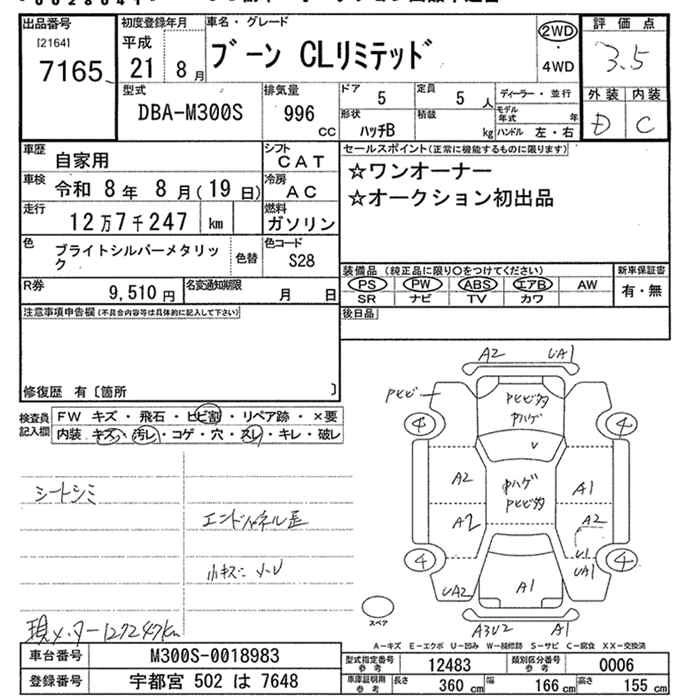 出品番号
[2164]
7165
初度登録年月
平成
21年 8月
車名・グレード
ブーン CLリミテッド
2WD
・
4WD
評価点
3.5
外装 内装
D C
型式
DBA-M300S
排気量
996 CC
ドア 5
定員 5 人
ディーラー・並行
形状 ハッチB
積載 kg
モデル年式 年
ハンドル 左・右
車歴
自家用
シフト
CAT
車検
令和 8年 8月(19日)
冷房
AC
走行
12万7千247 km
燃料
ガソリン
色
ブライトシルバーメタリック
色替
色コード
S28
R券
9,510円
名変通知期限
月 日
セールスポイント(正常に機能するものに限ります)
☆ワンオーナー
☆オークション初出品
装備品(純正品に限り○をつけてください)
PS PW ABS エアB AW
SR ナビ TV カワ
新車保証書
有・無
後日品
注意事項申告欄(不具合内容等は具体的に記入して下さい)
修復歴 有〔箇所 〕
検査員記入欄
FW キズ・飛石・ヒビ割・リペア跡・×要
内装 キズ・汚レ・コゲ・穴・スレ・キレ・破レ
シートシミ
エンドパネル歪
小キズ・
現メーター127247km
A2 UA1
Pヒビ
Pヒビ多
Pハゲ
4 4
V
A2
Pハゲ
Pヒビ多
A1
A2
A2
U1
4 4
UA2
UA1
A1
スペア
A3U2 A1
A-キズ E-エクボ U-凹み W-補修跡 S-サビ C-腐食 XX-交換済
車台番号
M300S-0018983
型式指定番号 参考
12483
類別区分番号 参考
0006
登録番号
宇都宮 502 は 7648
車庫証明用 参考
長さ 360 cm
幅 166 cm
高さ 155 cm